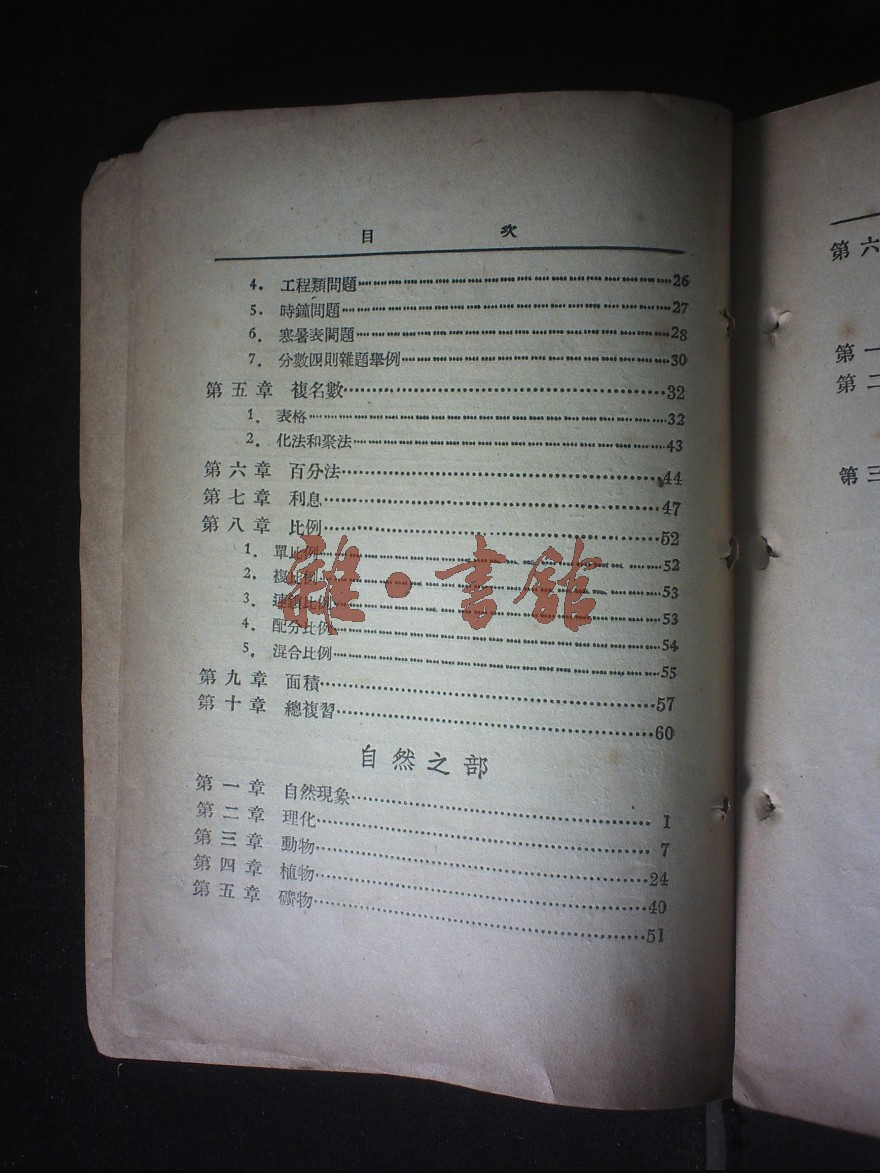 目 次
4. 工程類問題 26
5. 時鐘問題 27
6. 寒暑表問題 28
7. 分數四則雜題舉例 30
第五章 複名數 32
1. 表格 32
2. 化法和聚法 43
第六章 百分法 44
第七章 利息 47
第八章 比例 52
1. 單比例 52
2. 複比例 53
3. 連鎖比例 53
4. 配分比例 54
5. 混合比例 55
第九章 面積 57
第十章 總複習 60
自然之部
第一章 自然現象 1
第二章 理化 7
第三章 動物 24
第四章 植物 40
第五章 礦物 51
雜·書館
第六
第一
第二
第三